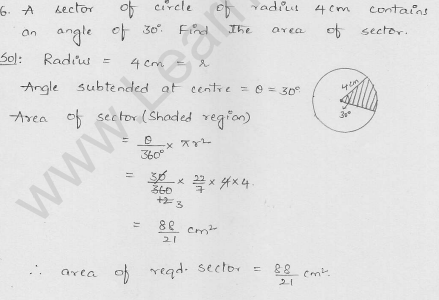 6. A sector of circle of radius 4cm contains
an angle of 30°. Find the area of sector.
Sol: Radius = 4cm = r
Angle subtended at centre = θ = 30°
4cm
30°
Area of sector (Shaded region)
= θ/360° × πr²
= 30/360 × 22/7 × 4 × 4.
12 3
= 88/21 cm²
∴ area of reqd. sector = 88/21 cm².
www.Learn